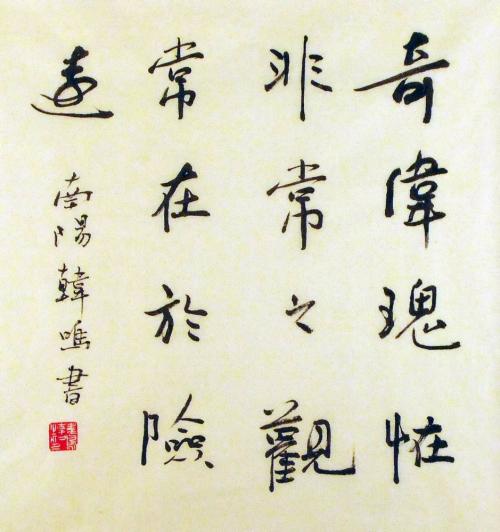 奇偉瑰恠
非常之觀
常在於險
遠
南陽韓書